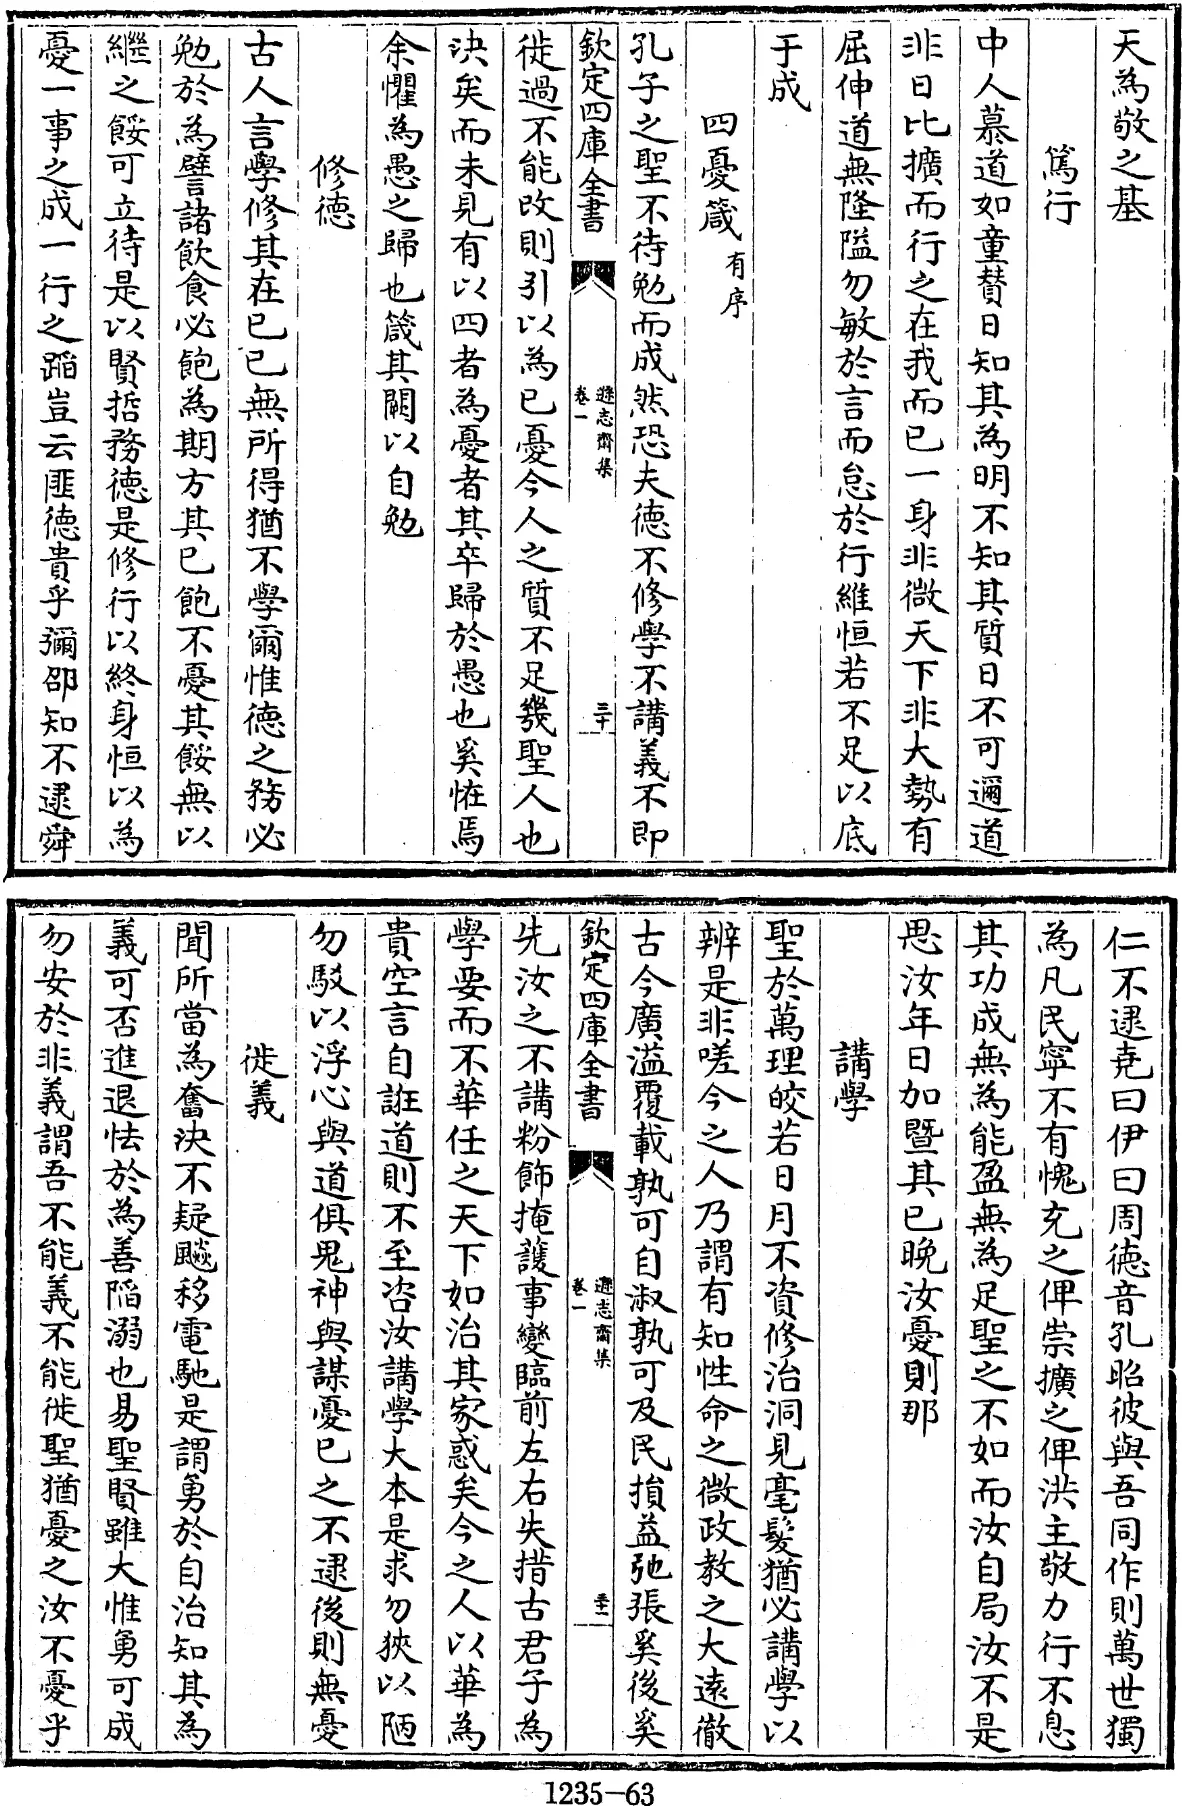 天為敬之基
篤行
中人慕道如童贊日知其為明不知其質日不可邇道
非日比擴而行之在我而已一身非微天下非大勢有
屈伸道無隆隘勿敏於言而怠於行維恒若不足以底
于成
四憂箴有序
孔子之聖不待勉而成然恐夫德不修學不講義不即
欽定四庫全書
遜志齋集
卷一
三十
徙過不能改則引以為已憂今人之質不足幾聖人也
決矣而未見有以四者為憂者其卒歸於愚也奚怪焉
余懼為愚之歸也箴其闕以自勉
修德
古人言學修其在已已無所得猶不學爾惟德之務必
勉於為譬諸飲食必飽為期方其已飽不憂其餒無以
繼之餒可立待是以賢哲務德是修行以終身恒以為
憂一事之成一行之蹈豈云匪德貴乎彌邵知不逮舜
仁不逮堯曰伊曰周德音孔昭彼與吾同作則萬世獨
為凡民寧不有愧充之俾崇擴之俾洪主敬力行不息
其功成無為能盈無為足聖之不如而汝自局汝不是
思汝年日加暨其已晚汝憂則那
講學
聖於萬理皎若日月不資修治洞見毫髮猶必講學以
辨是非嗟今之人乃謂有知性命之微政教之大遠徹
古今廣溢覆載孰可自淑孰可及民損益弛張奚後奚
欽定四庫全書
遜志齋集
卷一
三十一
先汝之不講粉飾掩護事變臨前左右失措古君子為
學要而不華任之天下如治其家惑矣今之人以華為
貴空言自誑道則不至咨汝講學大本是求勿狹以陋
勿駁以浮心與道俱鬼神與謀憂已之不逮後則無憂
徙義
聞所當為奮決不疑飈移電馳是謂勇於自治知其為
義可否進退怯於為善陷溺也易聖賢雖大惟勇可成
勿安於非義謂吾不能義不能徙聖猶憂之汝不憂乎
1235—63